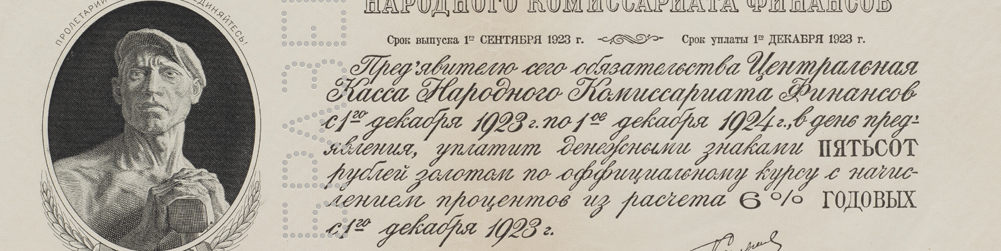 ПРОЛЕТАРИИ ДИНЯЙТЕСЬ!
НАРОДНОГО КОМИССАРИАТА ФИНАНСОВ
Срок выпуска 1го СЕНТЯБРЯ 1923 г. Срок уплаты 1го ДЕКАБРЯ 1923 г.
Пред'явителю сего обязательства Центральная
Касса Народного Комиссариата Финансов
с 1го декабря 1923 г. по 1ое декабря 1924 г., в день пред'-
явления, уплатит денежными знаками ПЯТЬСОТ
рублей золотом по оффициальному курсу с начис-
лением процентов из расчета 6% ГОДОВЫХ
с 1го декабря 1923 г.